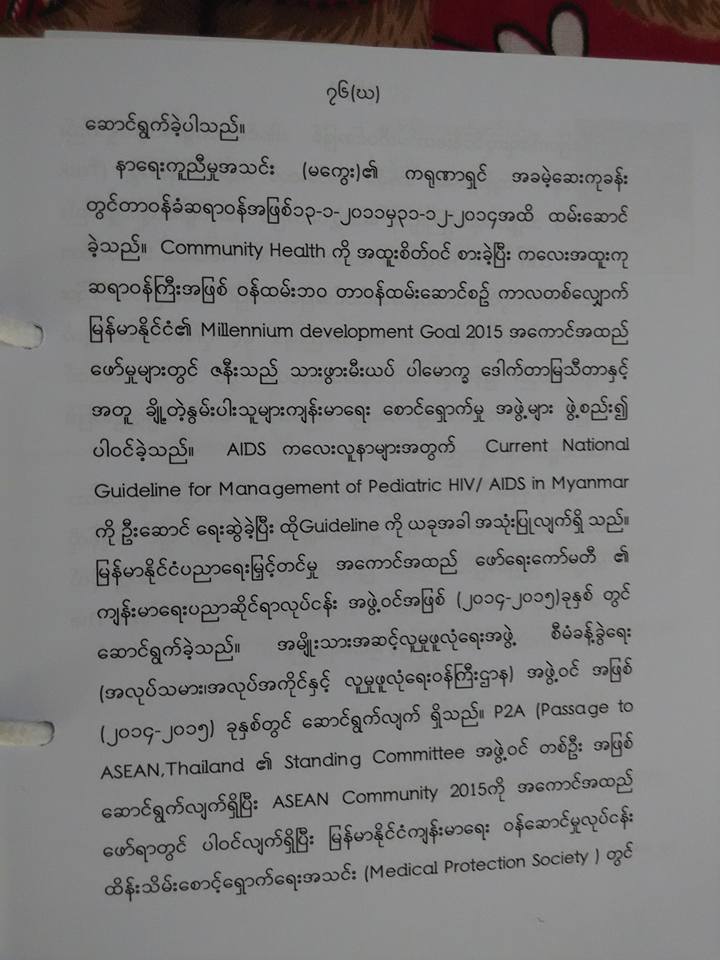 ၇၆(ဃ)
ဆောင်ရွက်ခဲ့ပါသည်။
နာရေးကူညီမှုအသင်း (မကွေး)၏ ကရုဏာရှင် အခမဲ့ဆေးကုခန်း
တွင်တာဝန်ခံဆရာဝန်အဖြစ်၁၃-၁-၂၀၁၁မှ၃၁-၁၂-၂၀၁၄အထိ ထမ်းဆောင်
ခဲ့သည်။ Community Health ကို အထူးစိတ်ဝင် စားခဲ့ပြီး ကလေးအထူးကု
ဆရာဝန်ကြီးအဖြစ် ဝန်ထမ်းဘဝ တာဝန်ထမ်းဆောင်စဥ် ကာလတစ်လျှောက်
မြန်မာနိုင်ငံ၏ Millennium development Goal 2015 အကောင်အထည်
ဖော်မှုများတွင် ဇနီးသည် သားဖွားမီးယပ် ပါမောက္ခ ဒေါက်တာမြသီတာနှင့်
အတူ ချို့တဲ့နွမ်းပါးသူများကျန်းမာရေး စောင်ရှောက်မှု အဖွဲ့များ ဖွဲ့စည်း၍
ပါဝင်ခဲ့သည်။ AIDS ကလေးလူနာများအတွက် Current National
Guideline for Management of Pediatric HIV/ AIDS in Myanmar
ကို ဦးဆောင် ရေးဆွဲခဲ့ပြီး ထိုGuideline ကို ယခုအခါ အသုံးပြုလျက်ရှိ သည်။
မြန်မာနိုင်ငံပညာရေးမြှင့်တင်မှု အကောင်အထည် ဖော်ရေးကော်မတီ ၏
ကျန်းမာရေးပညာဆိုင်ရာလုပ်ငန်း အဖွဲ့ဝင်အဖြစ် (၂၀၁၄-၂၀၁၅)ခုနှစ် တွင်
ဆောင်ရွက်ခဲ့သည်။ အမျိုးသားအဆင့်လူမှုဖူလုံရေးအဖွဲ့ စီမံခန့်ခွဲရေး
(အလုပ်သမား၊အလုပ်အကိုင်နှင့် လူမှုဖူလုံရေးဝန်ကြီးဌာန) အဖွဲ့ဝင် အဖြစ်
(၂၀၁၄-၂၀၁၅) ခုနှစ်တွင် ဆောင်ရွက်လျက် ရှိသည်။ P2A (Passage to
ASEAN,Thailand ၏ Standing Committee အဖွဲ့ဝင် တစ်ဦး အဖြစ်
ဆောင်ရွက်လျက်ရှိပြီး ASEAN Community 2015ကို အကောင်အထည်
ဖော်ရာတွင် ပါဝင်လျက်ရှိပြီး မြန်မာနိုင်ငံကျန်းမာရေး ဝန်ဆောင်မှုလုပ်ငန်း
ထိန်းသိမ်းစောင့်ရှောက်ရေးအသင်း (Medical Protection Society ) တွင်